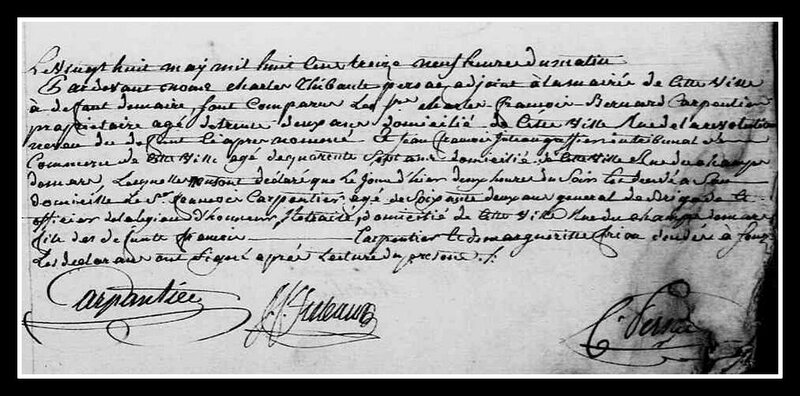 Le vingt huit may mil huit cent treize neuf heures du matin
Par devant nous charles Thibaute persac, adjoint à la mairie de cette ville
à defaut du maire, sont comparus Les Srs charles François Bernard Carpentier
propriétaire agé de trente deux ans domicilié de cette ville Rue de la revolution
neveu du defunt ci après nommé et Jean François greffier au tribunal de
Commerce de cette ville agé de quarente sept ans domicilié de cette ville Rue du champs
de mars, Lesquels nous ont declaré que Le Jour d'hier deux heures du soir Est decedé a son
domicille Sr francois Carpentier agé de soixante deux ans general de Brigade
officier de la legion d'honneur, Retraité, domicilié de cette ville Rue du champ de mars
fils des defunts francois Carpentier et de marguerite
Les declarans ont signé après Lecture du present ./.
Carpantiée